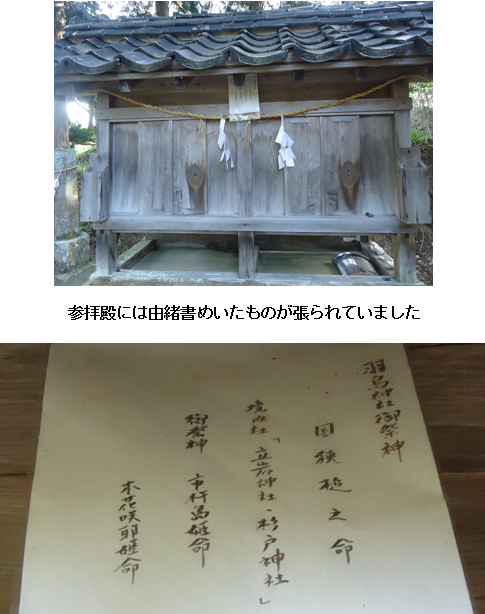 参拝殿には由緒書めいたものが張られていました
羽鳥神社御祭神
国狭槌之命
境内社「立岩神社・杉戸神社」
御祭神 市杵島姫命
木花咲耶姫命